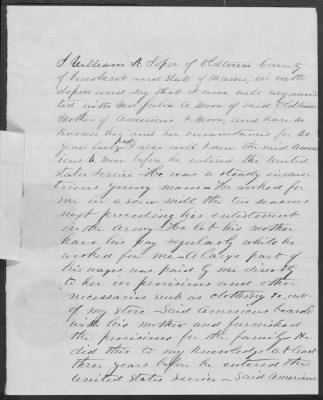 I William A Soper of Oldtown County
of Penobscot and State of Maine, on oath
depose and say that I am well acquain
ted with Mrs Julia A Moor of said Oldtown
Mother of Americus Moor, and have so
known her and her circumstances for 20
years last past, I also well knew the said Amer
icus Moor before he entered the United
States Service - He was a steady indus
trious young man - He worked for
me in a saw mill the two seasons
next preceeding his enlistment
in the Army - He let his mother
have his pay regularly while he
worked for me - A large part of
his wages was paid by me directly
to her in provisions and other
necessaries such as clothing &c, out
of my store - Said Americus boarded
with his mother and furnished
the provisions for the family - He
did this to my knowledge at least
three years before he entered the
United States Service - Said Americus